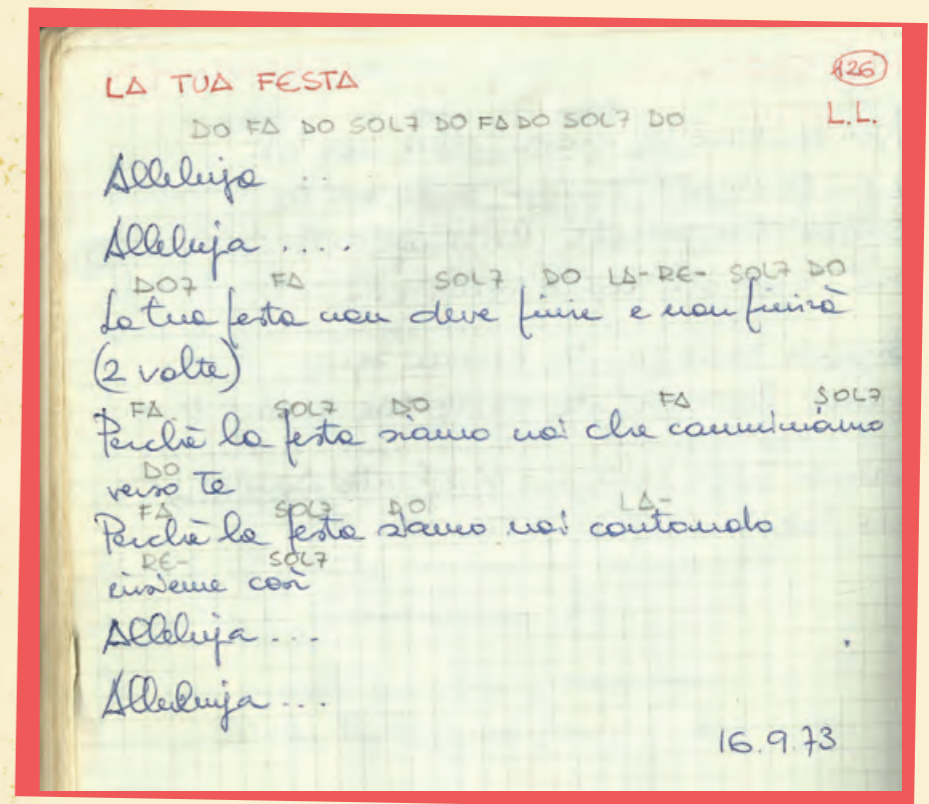 LA TUA FESTA
126
L.L.
DO FA DO SOL7 DO FA DO SOL7 DO
Alleluja ..
Alleluja ....
DO7 FA SOL7 DO LA- RE- SOL7 DO
La tua festa non deve finire e non finirà
(2 volte)
FA SOL7 DO FA SOL7
Perchè la festa siamo noi che camminiamo
DO
verso Te
FA SOL7 DO LA-
Perchè la festa siamo noi cantando
RE- SOL7
insieme così
Alleluja ...
Alleluja ....
16.9.73